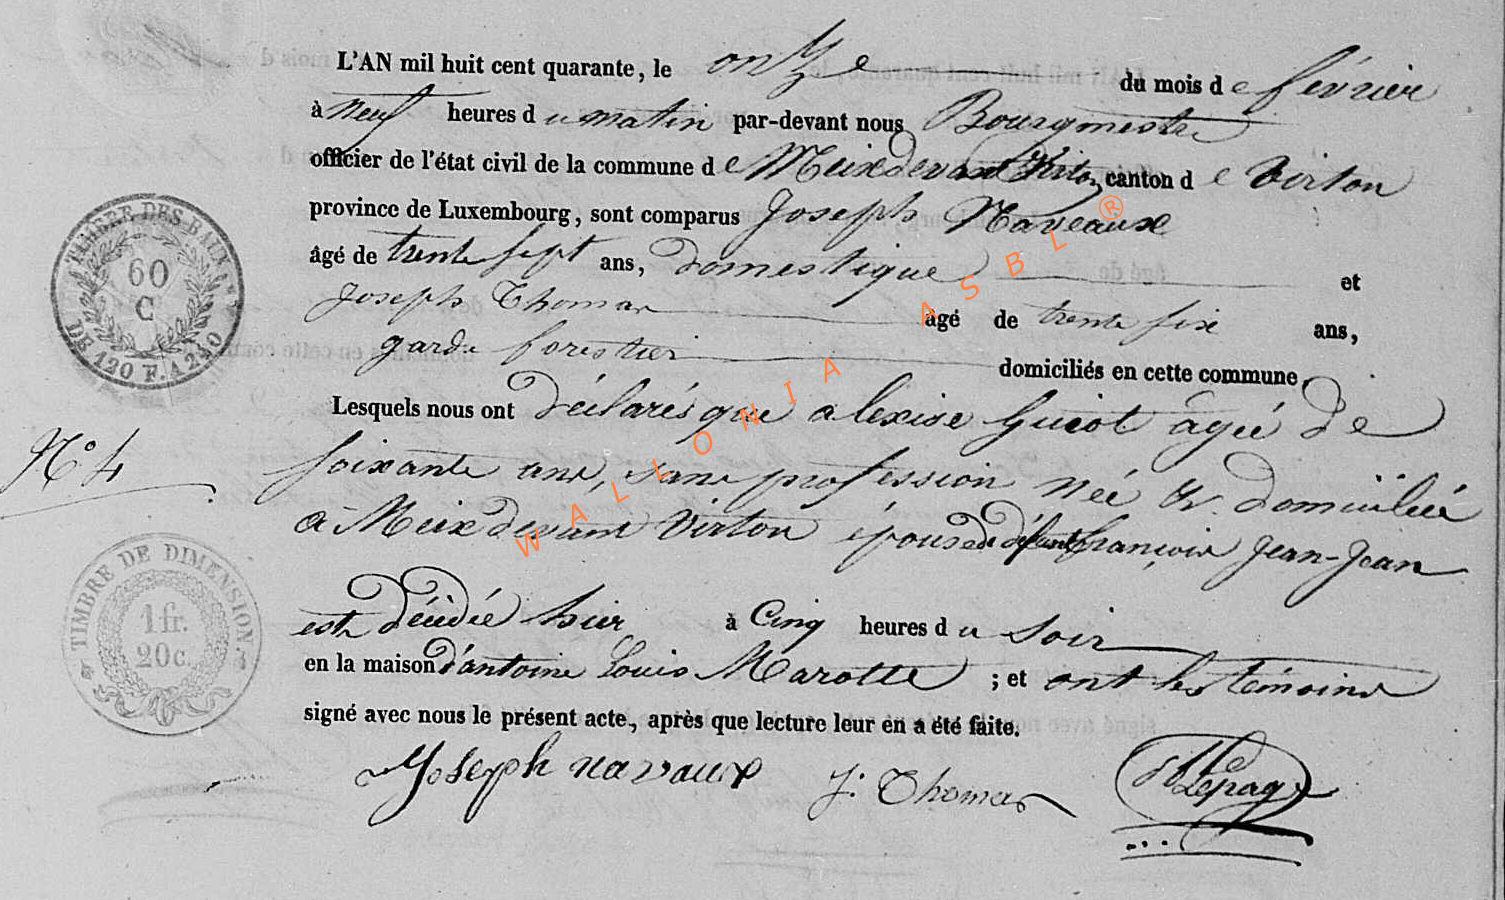 L'AN mil huit cent quarante, le onze du mois de février
à neuf heures du matin par-devant nous Bourgmestre
officier de l'état civil de la commune de Meix devant Virton, canton de Virton
province de Luxembourg, sont comparus Joseph Naveaux
âgé de trente sept ans, domestique et
Joseph Thomas âgé de trente six ans,
garde forestier domiciliés en cette commune,
Lesquels nous ont déclarés que alexise Guiot âgée de
N° 4
soixante ans, sans profession née & domiciliée
à Meix devant Virton épouse de défunt françois Jean-Jean
est décédée hier à Cinq heures du soir
en la maison d'antoine Louis Marotte ; et ont les témoins
signé avec nous le présent acte, après que lecture leur en a été faite.
Joseph navaux J. Thomas Lepage
TIMBRE DES BAUX
60
C
DE 120 F. A 240
TIMBRE DE DIMENSION
1 fr.
20 c.
WALLONIA ASBL ®